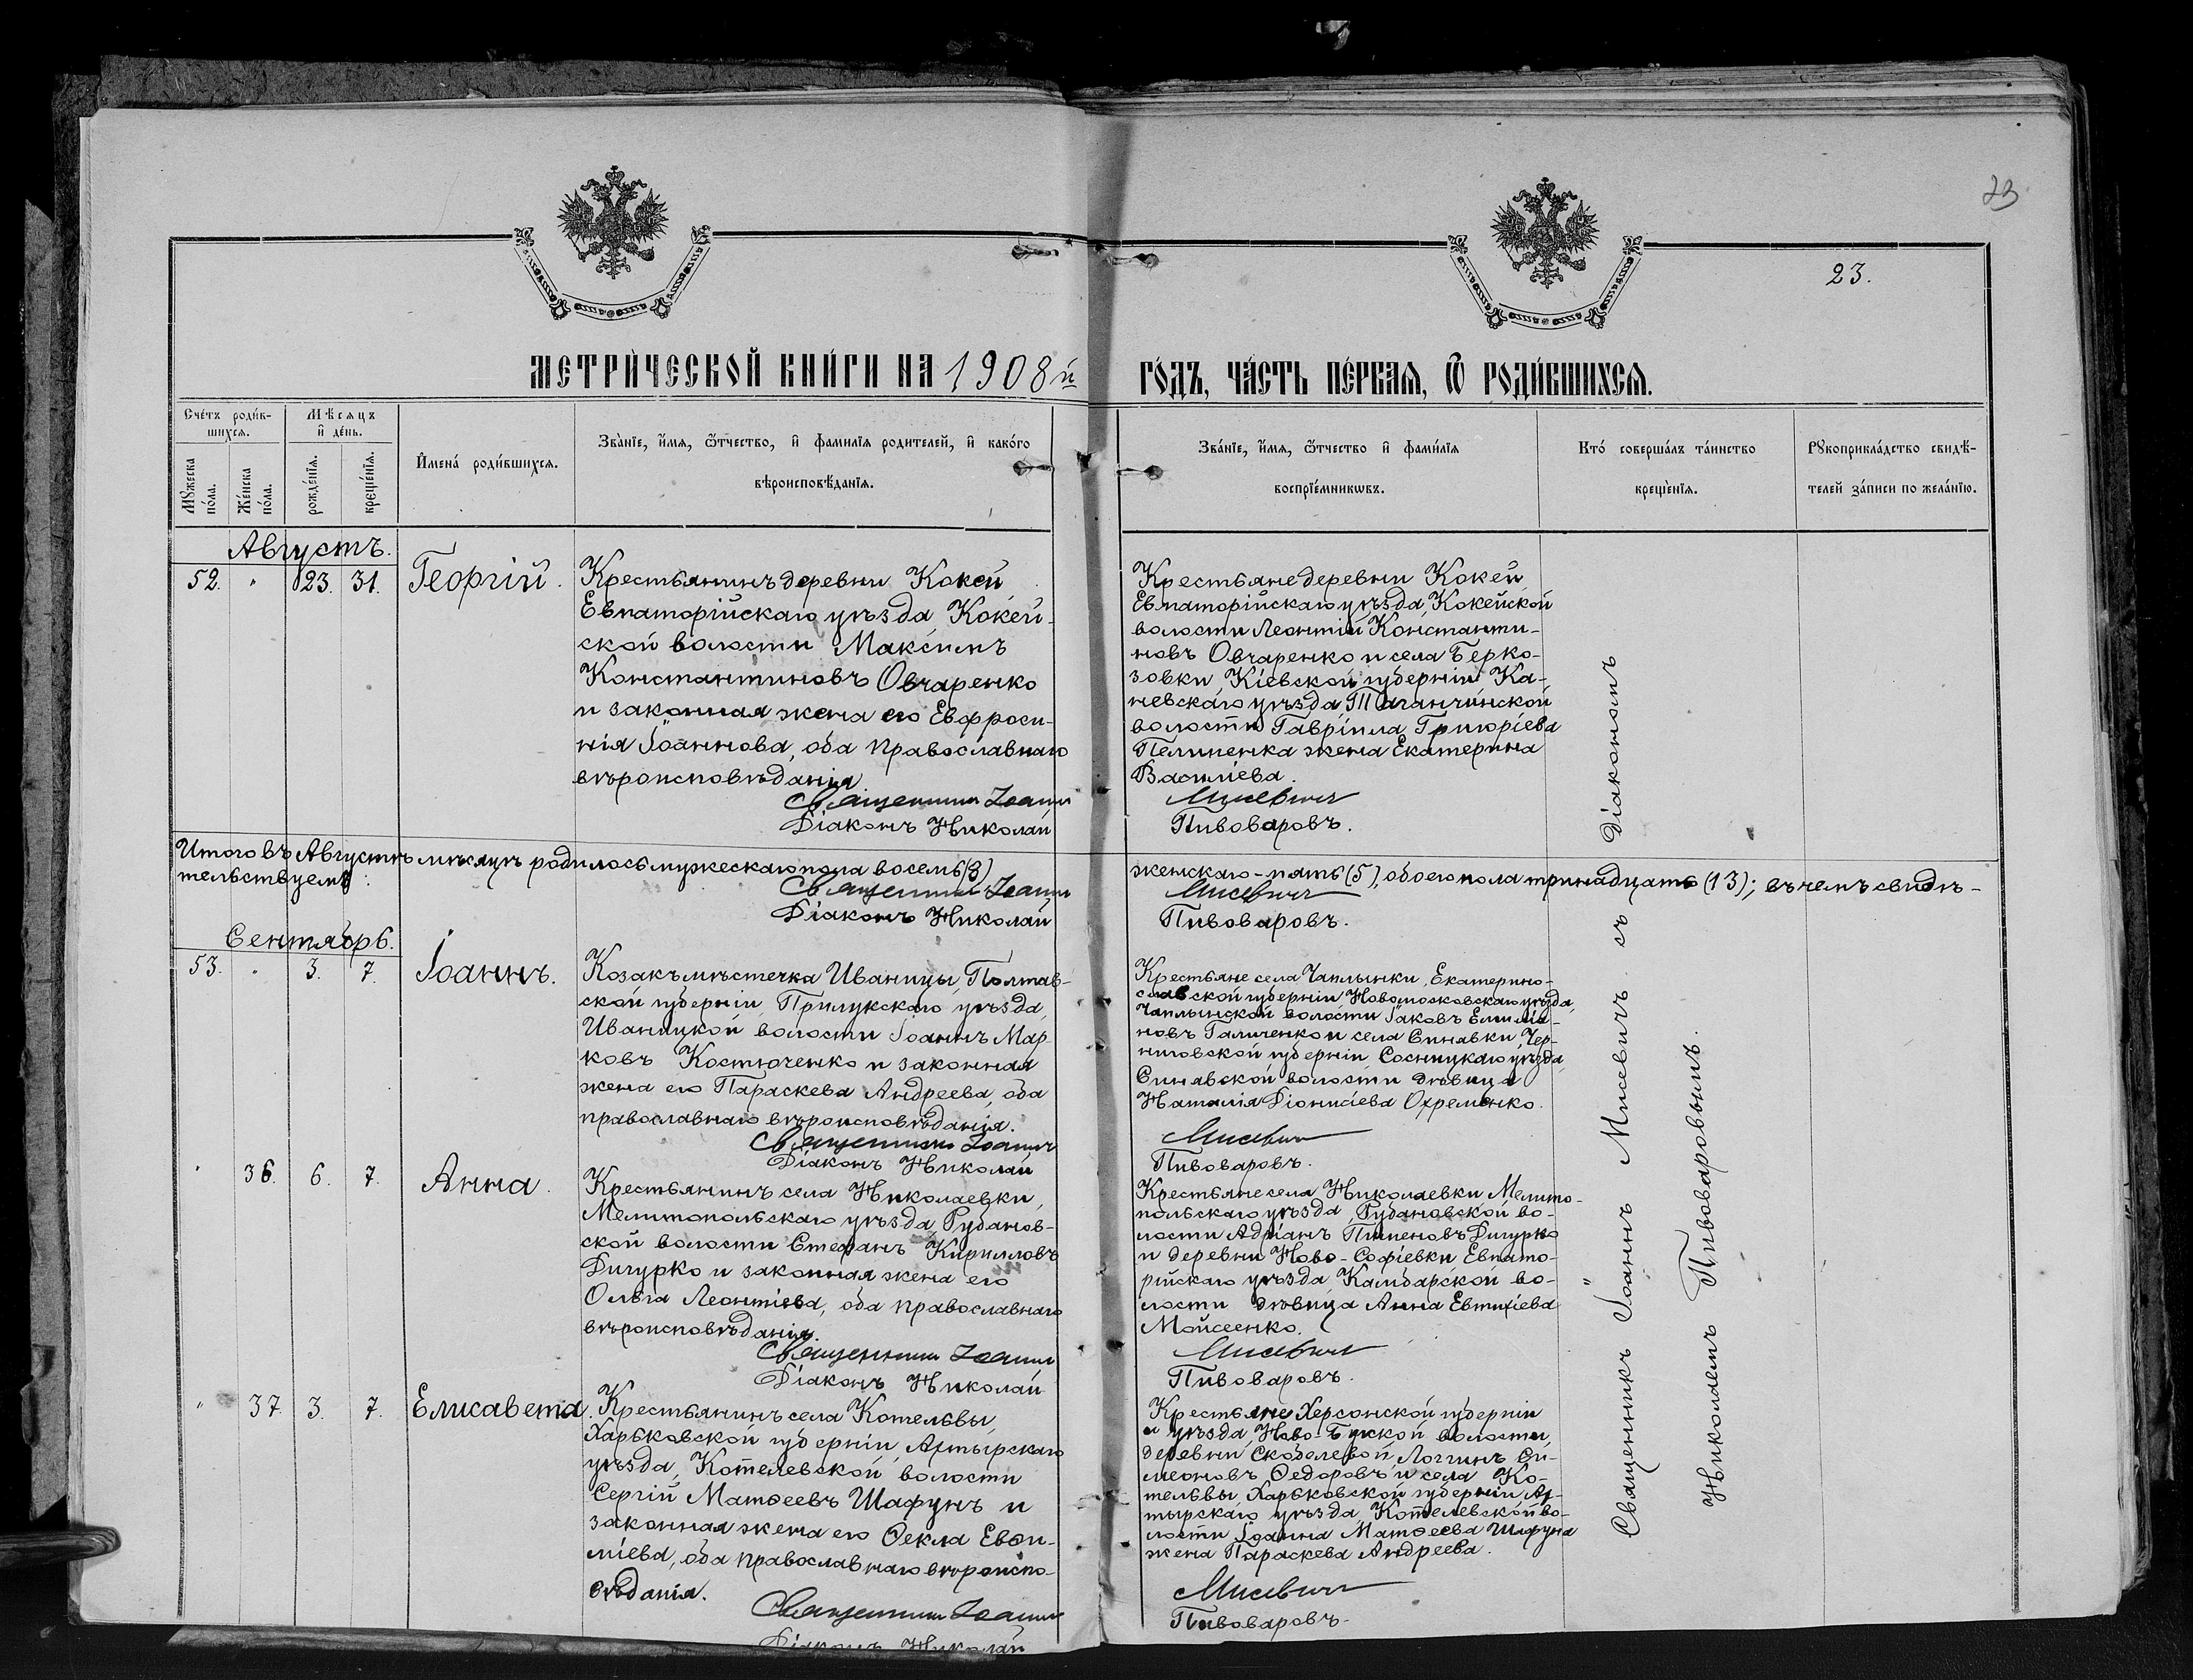 23
23.
МЕТРИЧЕСКОЙ КНИГИ НА 1908й ГОДЪ, ЧАСТЬ ПЕРВАЯ, Ѿ РОДИВШИХСЯ.
Счетъ родив-
шихся.
Мѣсяцъ
и день.
Мужеска
пола.
Женска
пола.
рожденія.
крещенія.
Имена родившихся.
Званіе, имя, ѿтчество, и фамилія родителей, и какого
вѣроисповѣданія.
Званіе, имя, ѿтчество и фамилія
воспріемникѡвъ.
Кто совершалъ таинство
крещенія.
Рукоприкладство свидѣ-
телей записи по желанію.
Августъ.
52. " 23. 31. Георгій.
Крестьянинъ деревни Кокей
Евпаторійскаго уѣзда, Кокей-
ской волости Максимъ
Константиновъ Овчаренко
и законная жена его Евфроси-
нія Іоаннова, оба православнаго
вѣроисповѣданія.
Священникъ Іоаннъ
Діаконъ Николай
Крестьяне деревни Кокей
Евпаторійскаго уѣзда, Кокейской
волости Леонтій Константи-
новъ Овчаренко и села Берко-
зовки, Кіевской губерніи Ка-
невскаго уѣзда Таганчинской
волости Гавріила Григоріева
Пелипенка жена Екатерина
Василіева.
Мисевичъ
Пивоваровъ.
Итого въ Августѣ мѣсяцѣ родилось мужескаго пола восемь (8) женскаго - пять (5), обоего пола тринадцать (13); въ чемъ свидѣ-
тельствуемъ:
Священникъ Іоаннъ Мисевичъ
Діаконъ Николай Пивоваровъ.
Сентябрь.
53. " 3. 7. Іоаннъ.
Козакъ мѣстечка Иваницы, Полтав-
ской губерніи, Прилукскаго уѣзда,
Иваницкой волости Іоаннъ Мар-
ковъ Костюченко и законная
жена его Параскева Андреева, оба
православнаго вѣроисповѣданія.
Священникъ Іоаннъ
Діаконъ Николай
Крестьяне села Чаплынки, Екатерино-
славской губерніи Новомосковскаго уѣзда,
Чаплынской волости Іаковъ Емилія-
новъ Галиченко и села Синявки, Чер-
ниговской губерніи Сосницкаго уѣзда,
Синявской волости дѣвица
Наталія Діонисіева Охременко.
Мисевичъ
Пивоваровъ.
" 36. 6. 7. Анна.
Крестьянинъ села Николаевки,
Мелитопольскаго уѣзда, Рубанов-
ской волости Стефанъ Кирилловъ
Дигурко и законная жена его
Ольга Леонтіева, оба православнаго
вѣроисповѣданія.
Священникъ Іоаннъ
Діаконъ Николай
Крестьяне села Николаевки Мелито-
польскаго уѣзда, Рубановской во-
лости Адріанъ Пименовъ Дигурко
и деревни Ново-Софіевки Евпато-
рійскаго уѣзда, Камбарской во-
лости дѣвица Анна Евтихіева
Мойсеенко.
Мисевичъ
Пивоваровъ.
" 37. 3. 7. Елисавета.
Крестьянинъ села Котельвы,
Харьковской губерніи, Ахтырскаго
уѣзда, Котелевской волости
Сергій Матѳеевъ Шафунъ и
законная жена его Ѳекла Евѳи-
міева, оба православнаго вѣроиспо-
вѣданія.
Священникъ Іоаннъ
Діаконъ Николай
Крестьяне Херсонской губерніи
и уѣзда, Ново-Бугской волости,
деревни Скобелевой, Логгинъ Си-
меоновъ Ѳедоровъ и села Ко-
тельвы, Харьковской губерніи Ах-
тырскаго уѣзда, Котелевской во-
лости Іоанна Матѳеева Шафуна
жена Параскева Андреева.
Мисевичъ
Пивоваровъ.
Священникъ Іоаннъ Мисевичъ съ Діакономъ
Николаемъ Пивоваровымъ.